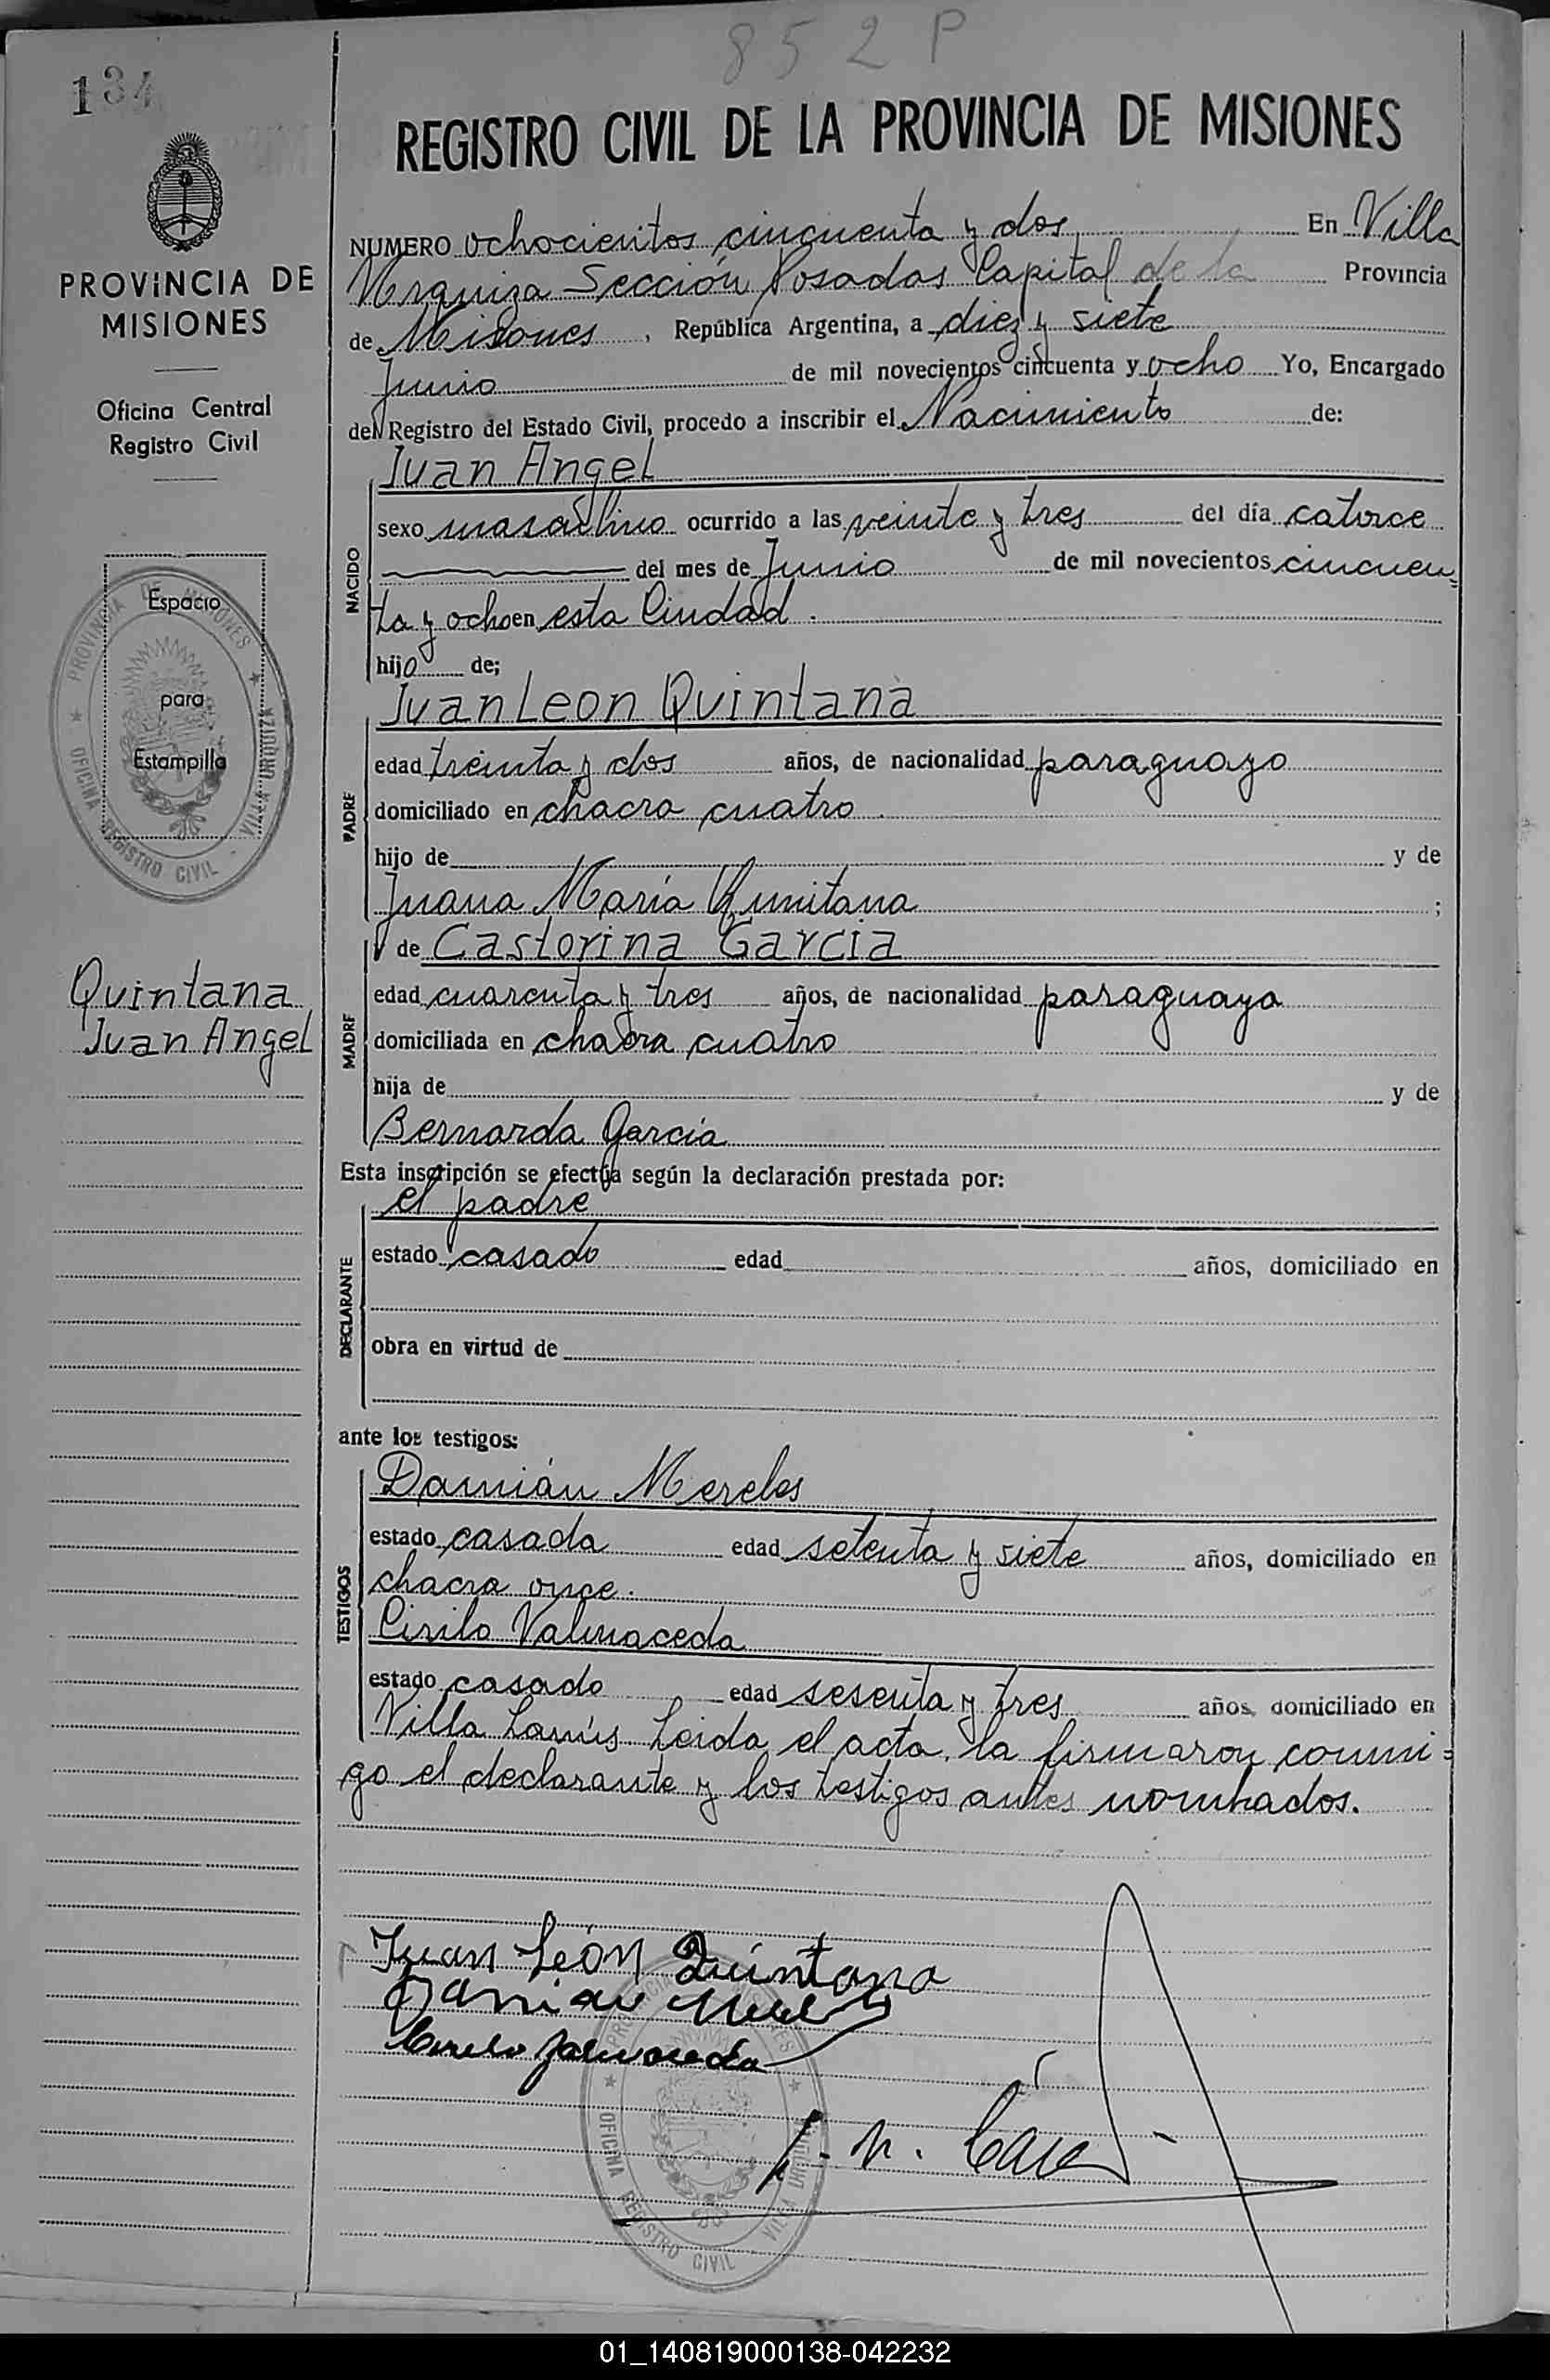 852 P
134
REGISTRO CIVIL DE LA PROVINCIA DE MISIONES
PROVINCIA DE
MISIONES
Oficina Central
Registro Civil
Espacio
para
Estampilla
PROVINCIA DE MISIONES
OFICINA REGISTRO CIVIL - VILLA URQUIZA
Quintana
Juan Angel
NUMERO ochocientos cincuenta y dos En Villa
Urquiza Sección Posadas Capital de la Provincia
de Misiones, República Argentina, a diez y siete
Junio de mil novecientos cincuenta y ocho Yo, Encargado
del Registro del Estado Civil, procedo a inscribir el Nacimiento de:
NACIDO
Juan Angel
sexo masculino ocurrido a las veinte y tres del día catorce
del mes de Junio de mil novecientos cincuen
ta y ocho en esta Ciudad.
hijo de;
PADRE
Juan Leon Quintana
edad treinta y dos años, de nacionalidad paraguayo
domiciliado en chacra cuatro
hijo de y de
Juana María Quintana ;
MADRE
y de Castorina Garcia
edad cuarenta y tres años, de nacionalidad paraguaya
domiciliada en chacra cuatro
hija de y de
Bernarda Garcia
Esta inscripción se efectúa según la declaración prestada por:
DECLARANTE
el padre
estado casado edad años, domiciliado en
obra en virtud de
ante los testigos:
TESTIGOS
Damián Mereles
estado casada edad setenta y siete años, domiciliado en
chacra once.
Cirilo Valmaceda
estado casado edad sesenta y tres años, domiciliado en
Villa Lanús Leida el acta, la firmaron conmi=
go el declarante y los testigos antes nombrados.
Juan León Quintana
Damian
OFICINA REGISTRO CIVIL VILLA URQUIZA
01_140819000138-042232